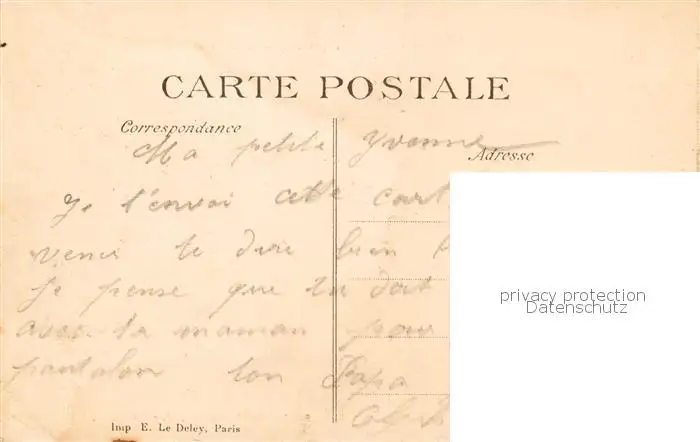 CARTE POSTALE
Correspondance
Adresse
Ma petite Yvonne
Je t'envoi cette cart
venir te dire bien
Je pense que tu doit
avec ta maman pour
pantalon ton Papa
Imp E. Le Deley, Paris
privacy protection
Datenschutz